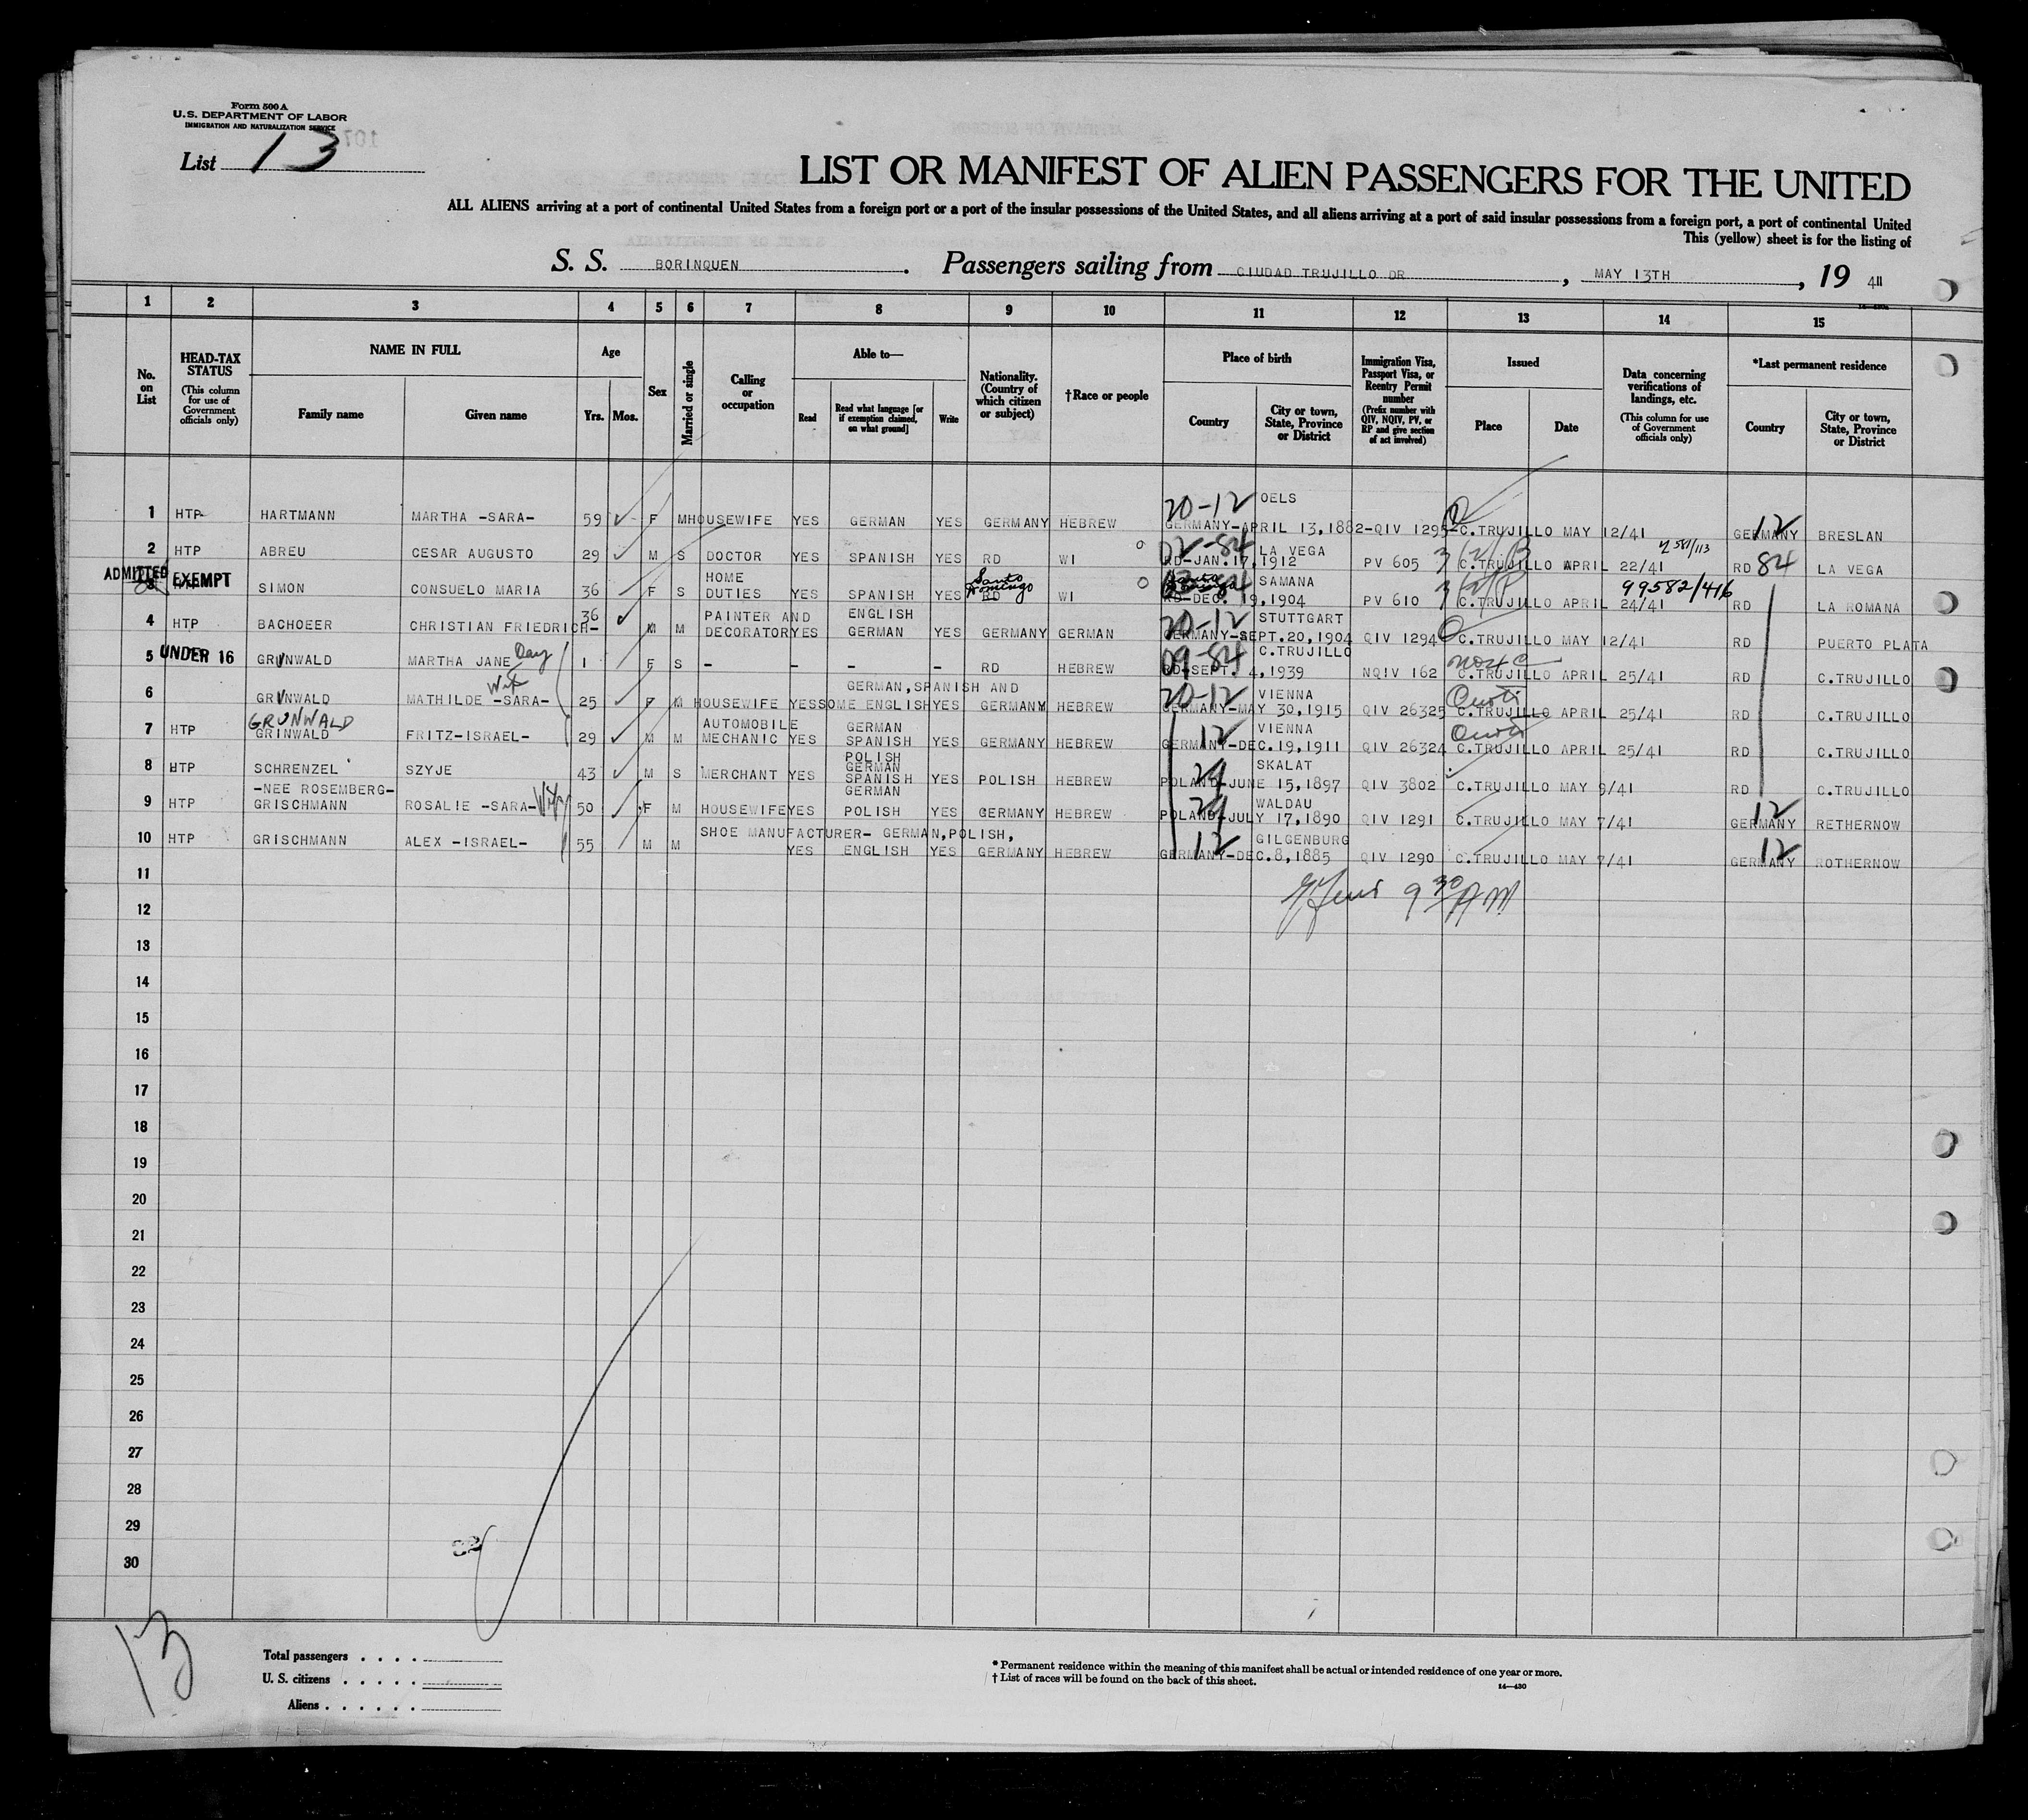 Form 500 A
U.S. DEPARTMENT OF LABOR
IMMIGRATION AND NATURALIZATION SERVICE
List 13
LIST OR MANIFEST OF ALIEN PASSENGERS FOR THE UNITED
ALL ALIENS arriving at a port of continental United States from a foreign port or a port of the insular possessions of the United States, and all aliens arriving at a port of said insular possessions from a foreign port, a port of continental United
This (yellow) sheet is for the listing of
S. S. BORINQUEN. Passengers sailing from CIUDAD TRUJILLO DR, MAY 13TH, 19 41
1 2 3 4 5 6 7 8 9 10 11 12 13 14 15
No. on List
HEAD-TAX STATUS (This column for use of Government officials only)
NAME IN FULL Family name Given name
Age Yrs. Mos.
Sex
Married or single
Calling or occupation
Able to— Read Read what language [or if exemption claimed, on what ground] Write
Nationality. (Country of which citizen or subject)
†Race or people
Place of birth Country City or town, State, Province or District
Immigration Visa, Passport Visa, or Reentry Permit number (Prefix number with QIV, NQIV, PV, or RP and give section of act involved)
Issued Place Date
Data concerning verifications of landings, etc. (This column for use of Government officials only)
*Last permanent residence Country City or town, State, Province or District
1 HTP HARTMANN MARTHA -SARA- 59 F M HOUSEWIFE YES GERMAN YES GERMANY HEBREW 20-12 OELS GERMANY-APRIL 13,1882-QIV 1295 C.TRUJILLO MAY 12/41 GERMANY 12 BRESLAN
2 HTP ABREU CESAR AUGUSTO 29 M S DOCTOR YES SPANISH YES RD WI 02-84 LA VEGA RD-JAN.17,1912 PV 605 3(2)B C.TRUJILLO APRIL 22/41 RD 84 LA VEGA
ADMITTED 3 EXEMPT SIMON CONSUELO MARIA 36 F S HOME DUTIES YES SPANISH YES Santo Domingo RD WI SAMANA RD-DEC. 19,1904 PV 610 C.TRUJILLO APRIL 24/41 99582/416 RD LA ROMANA
4 HTP BACHOEER CHRISTIAN FRIEDRICH- 36 M M PAINTER AND DECORATOR YES ENGLISH GERMAN YES GERMANY GERMAN 20-12 STUTTGART GERMANY-SEPT.20,1904 QIV 1294 C.TRUJILLO MAY 12/41 RD PUERTO PLATA
5 UNDER 16 GRUNWALD MARTHA JANE 1 F S - - - - RD HEBREW 09-84 C.TRUJILLO RD-SEPT. 4,1939 NQIV 162 C.TRUJILLO APRIL 25/41 RD C.TRUJILLO
6 GRUNWALD MATHILDE -SARA- 25 F M HOUSEWIFE YES GERMAN,SPANISH AND SOME ENGLISH YES GERMANY HEBREW 20-12 VIENNA GERMANY-MAY 30,1915 QIV 26325 C.TRUJILLO APRIL 25/41 RD C.TRUJILLO
7 HTP GRUNWALD GRINWALD FRITZ-ISRAEL- 29 M M AUTOMOBILE MECHANIC YES GERMAN SPANISH YES GERMANY HEBREW 12 VIENNA GERMANY-DEC.19,1911 QIV 26324 C.TRUJILLO APRIL 25/41 RD C.TRUJILLO
8 HTP SCHRENZEL SZYJE 43 M S MERCHANT YES POLISH GERMAN SPANISH YES POLISH HEBREW SKALAT POLAND-JUNE 15,1897 QIV 3802 C.TRUJILLO MAY 9/41 RD C.TRUJILLO
9 HTP -NEE ROSEMBERG- GRISCHMANN ROSALIE -SARA- Wife 50 F M HOUSEWIFE YES GERMAN POLISH YES GERMANY HEBREW WALDAU POLAND-JULY 17,1890 QIV 1291 C.TRUJILLO MAY 7/41 GERMANY 12 RETHERNOW
10 HTP GRISCHMANN ALEX -ISRAEL- 55 M M SHOE MANUFACTURER- GERMAN,POLISH, YES ENGLISH YES GERMANY HEBREW 12 GILGENBURG GERMANY-DEC.8,1885 QIV 1290 C.TRUJILLO MAY 7/41 GERMANY 12 ROTHERNOW
11
9 30 AM
12
13
14
15
16
17
18
19
20
21
22
23
24
25
26
27
28
29
30
13
Total passengers
U. S. citizens
Aliens
* Permanent residence within the meaning of this manifest shall be actual or intended residence of one year or more.
† List of races will be found on the back of this sheet.
14—430